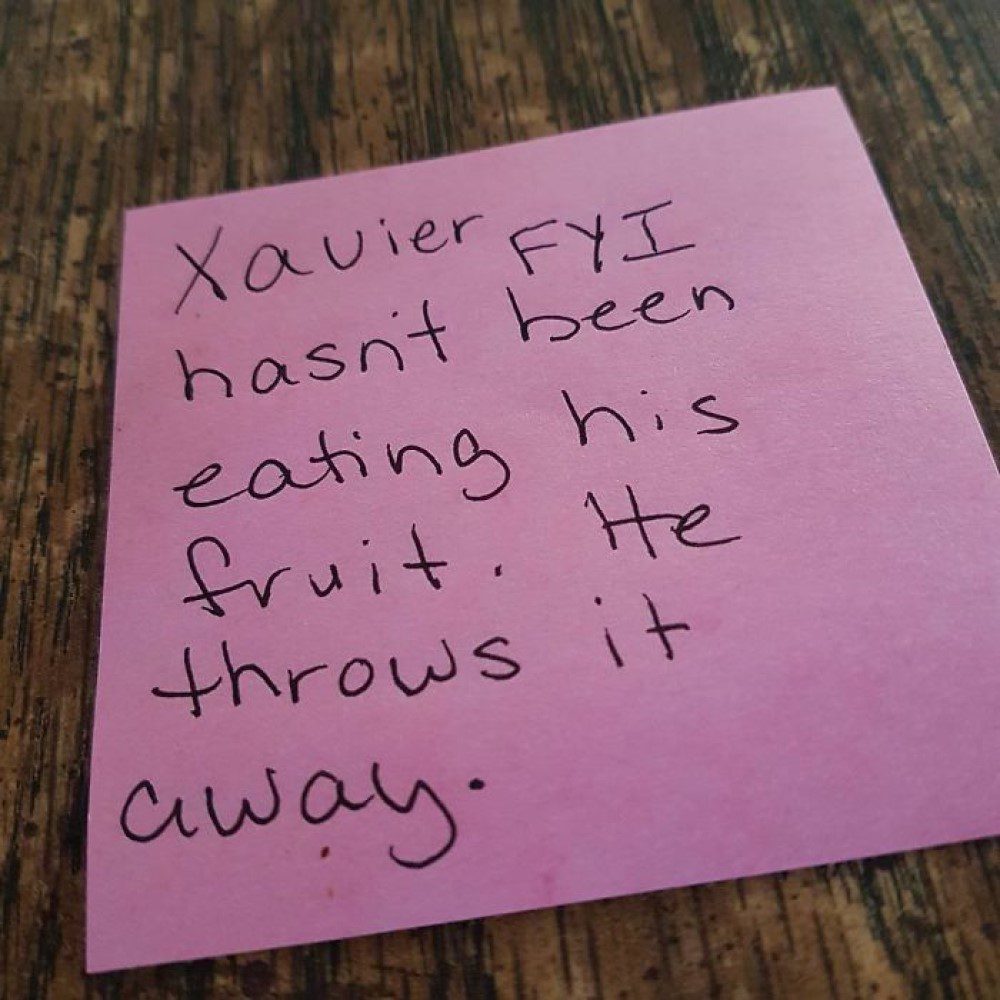 Xavier FYI
hasn't been
eating his
fruit. He
throws it
away.